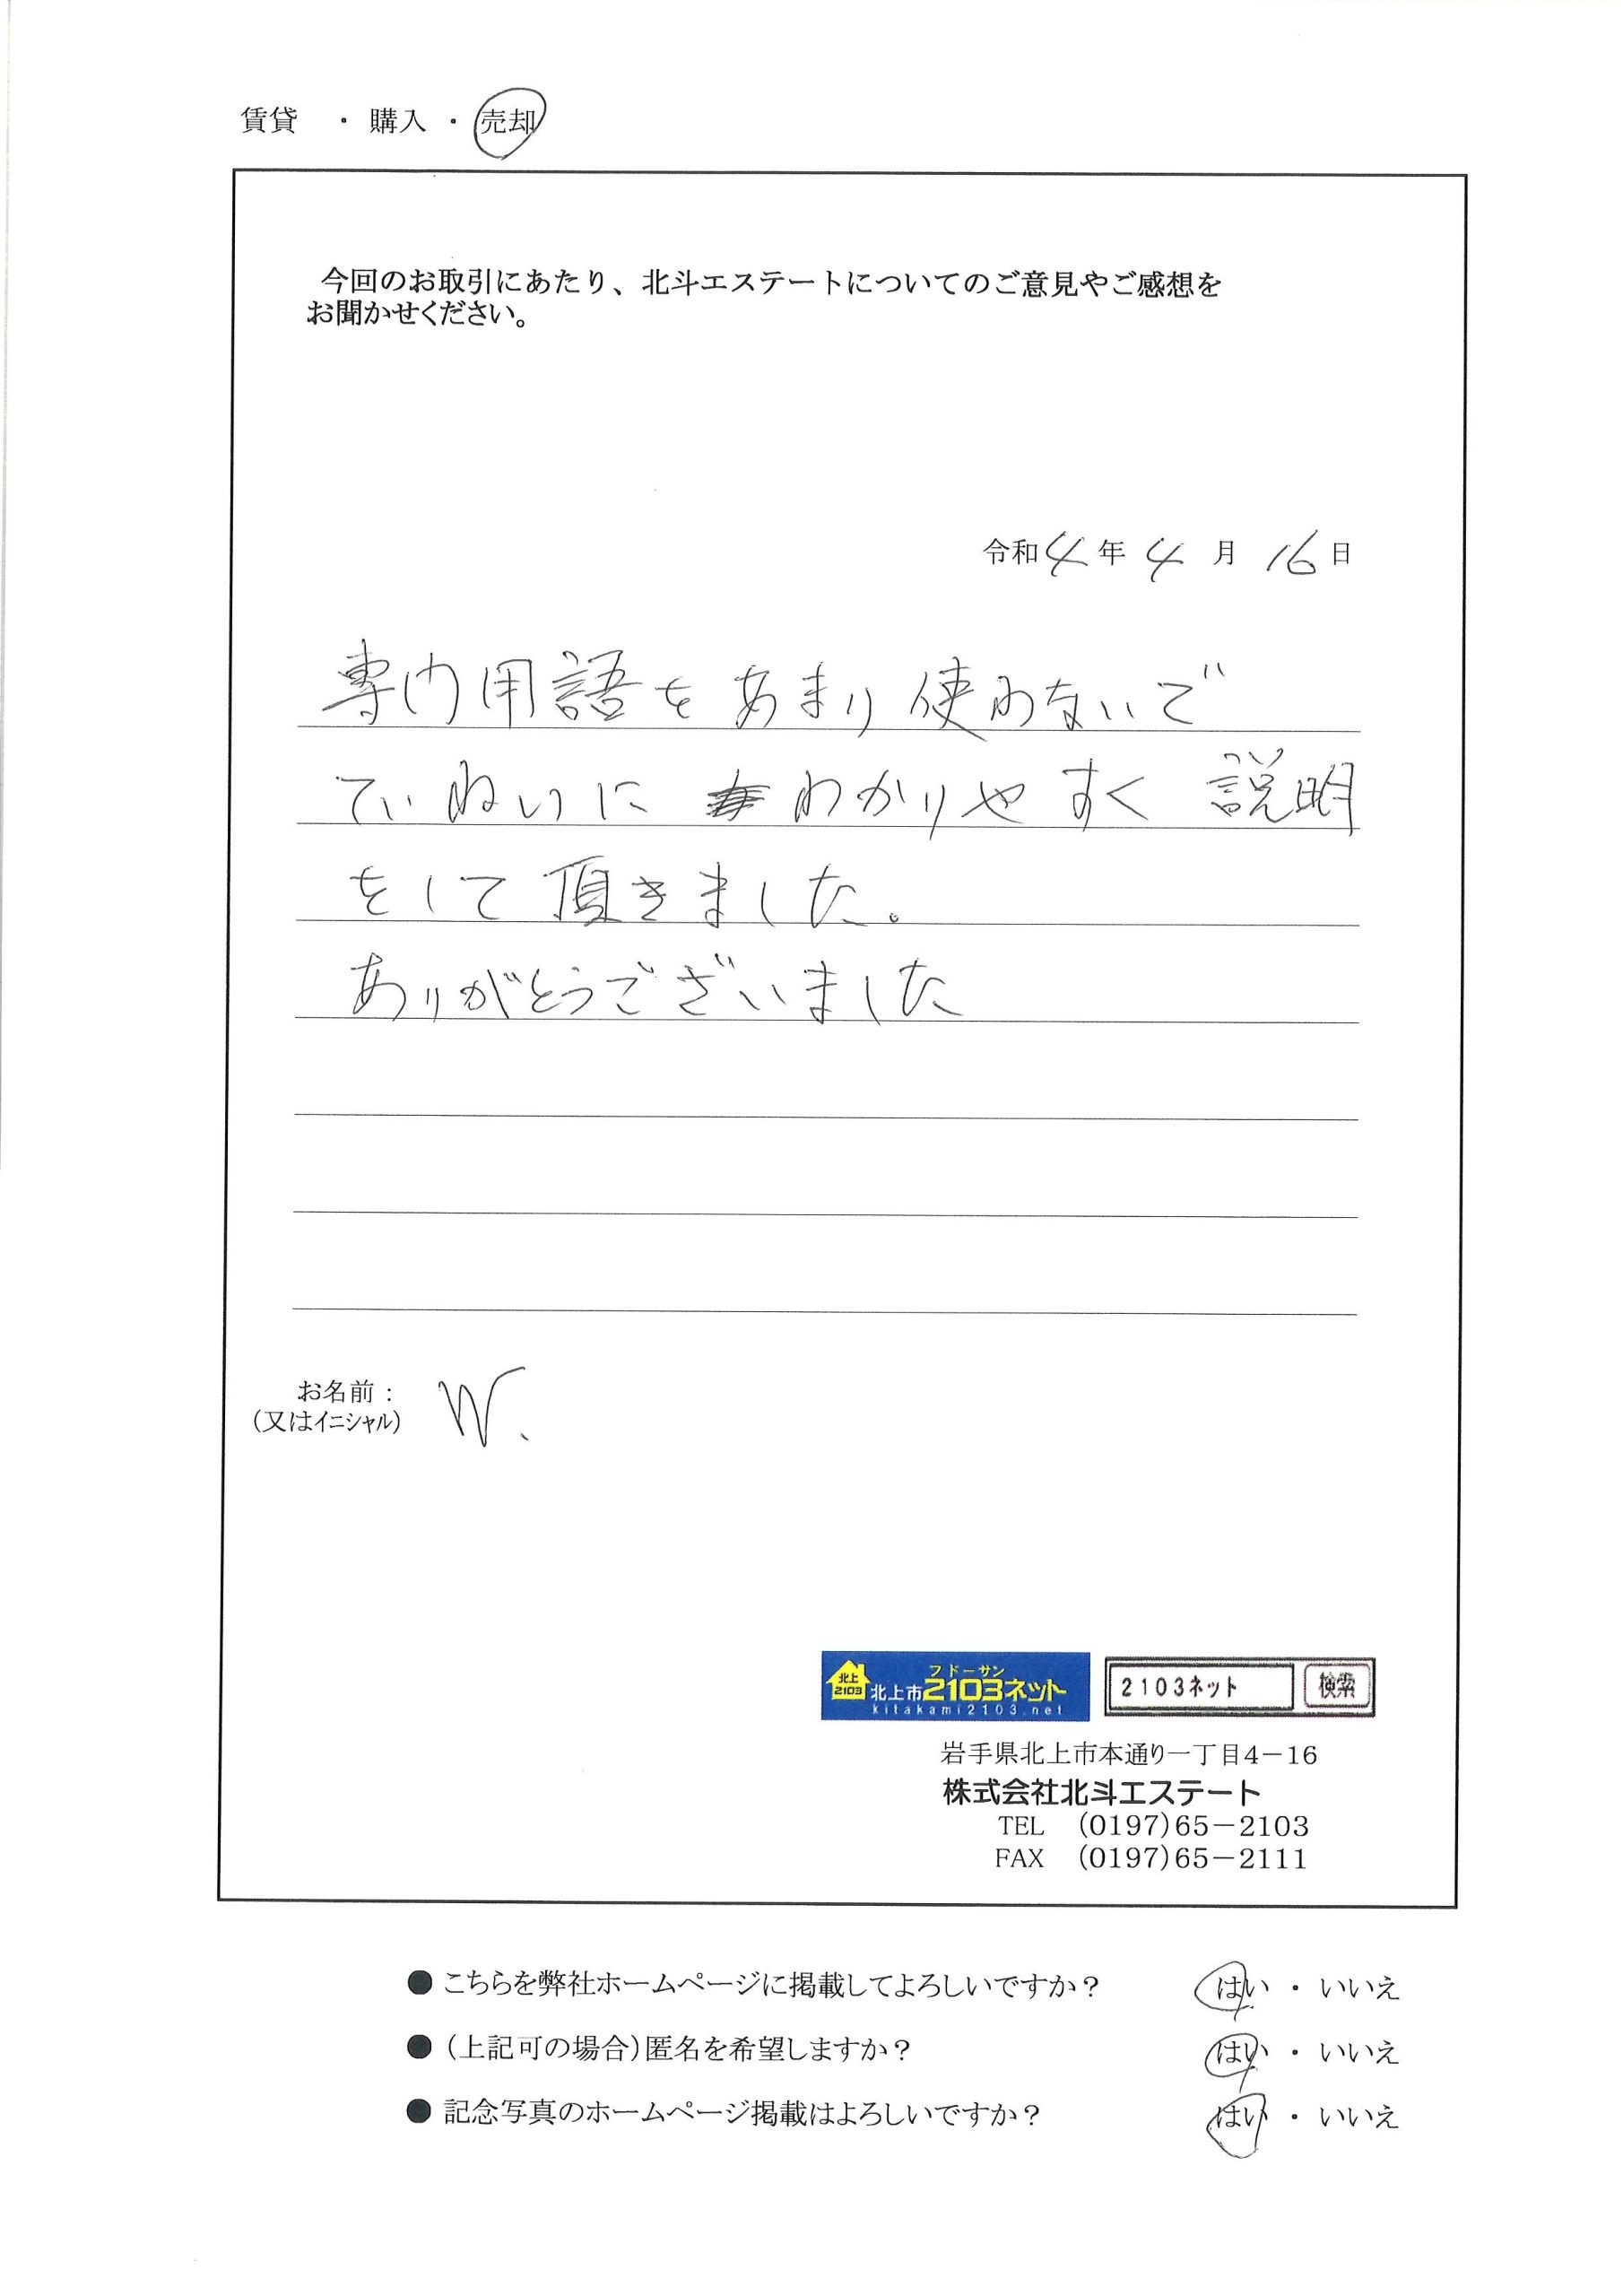 賃貸 ・ 購入 ・ 売却
今回のお取引にあたり、北斗エステートについてのご意見やご感想を
お聞かせください。
令和4年4月16日
専門用語をあまり使わないで
ていねいに わかりやすく 説明
をして頂きました。
ありがとうございました
お名前：
(又はイニシャル)
W.
北上
2103
フドーサン
北上市2103ネット
kitakami2103.net
2103ネット 検索
岩手県北上市本通り一丁目4－16
株式会社北斗エステート
TEL (0197)65－2103
FAX (0197)65－2111
●こちらを弊社ホームページに掲載してよろしいですか？ はい ・ いいえ
●(上記可の場合)匿名を希望しますか？ はい ・ いいえ
●記念写真のホームページ掲載はよろしいですか？ はい ・ いいえ